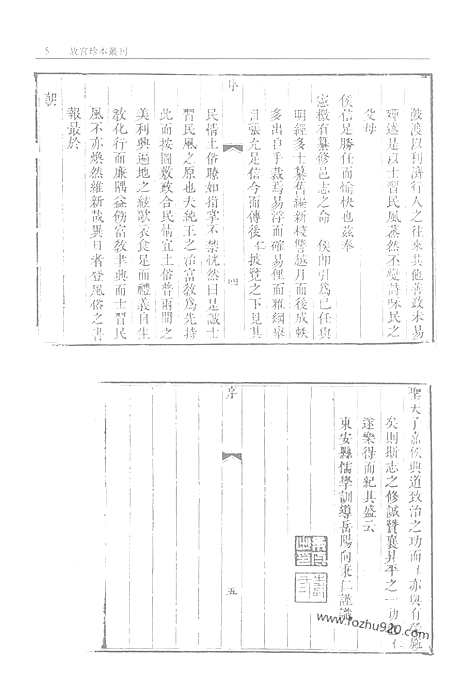 5 故宮珍本叢刊
鼓渡以利濟行人之往來其他善政未易
殫述是以士習民風蒸然不變詩咏民之
父母
侯信是勝任而愉快也茲奉
憲檄有纂修邑志之命 侯即引為己任衰
明經多士纂舊綴新校讐越月而後成帙
多出自手裁為易浮而確易俚而雅綱舉
目張允足信今而傳後本披覽之下見其
序 四
民情土俗瞭如指掌不禁恍然曰是誠士
習民風之原也夫統王之治富教為先持
此而按圖敷政合民情宜土俗普兩間之
美利興遍地之絃歌衣食足而禮義自生
教化行而廉隅益勵富教書典而士習民
風不亦煥然維新哉異日者登風俗之書
報最於
朝
聖天子嘉侯興道致治之功而
矣則斯志之修誠贊襄昇平之一助
遂樂得而紀其盛云
東安縣儒學訓導岳陽向秉仁謹識
序 五
www.fozhu920.com